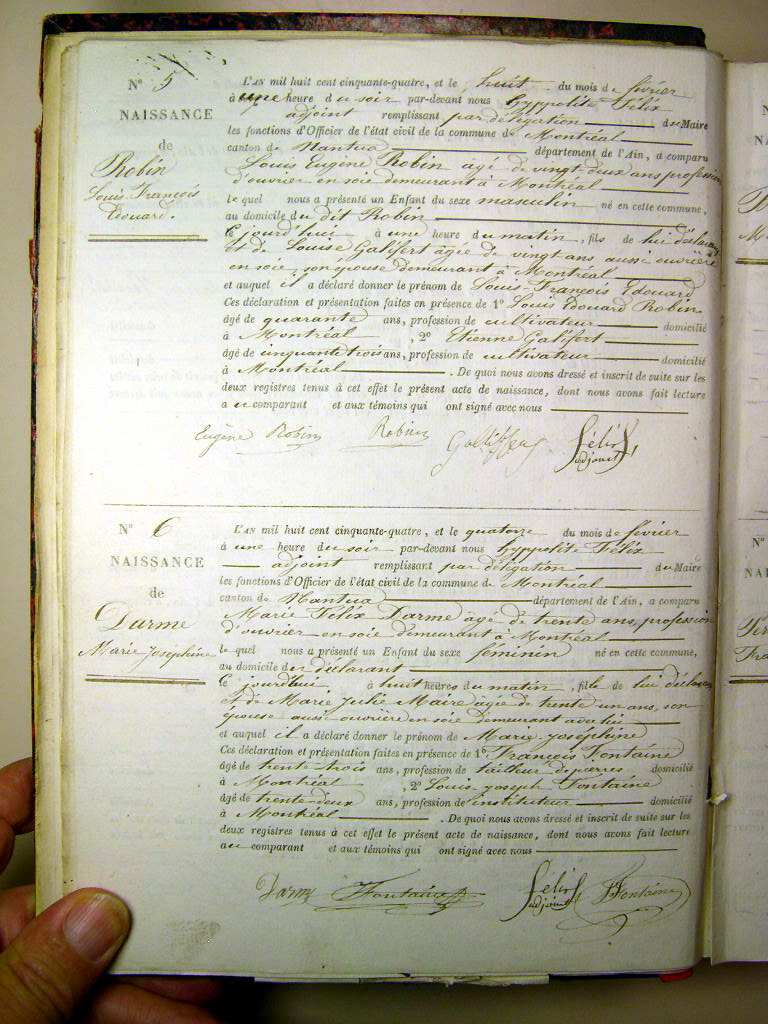 N° 5
NAISSANCE
de
Robin
Louis François
Édouard.
L'AN mil huit cent cinquante-quatre, et le huit du mois de février
à une heure du soir par-devant nous hyppolite Félix
adjoint remplissant par délégation du Maire
les fonctions d'Officier de l'état civil de la commune de Montréal
canton de Nantua département de l'Ain, a comparu
Louis Eugène Robin âgé de vingt deux ans, profession
d'ouvrier en soie demeurant à Montréal
le quel nous a présenté un Enfant du sexe masculin né en cette commune,
au domicile du dit Robin
Ce jourd'hui à une heure du matin, fils de lui déclarant
et de Louise Galifert âgée de vingt ans, aussi ouvrière
en soie, son épouse demeurant à Montréal
et auquel il a déclaré donner le prénom de Louis-François Édouard
Ces déclaration et présentation faites en présence de 1° Louis Édouard Robin
âgé de quarante ans, profession de cultivateur domicilié
à Montréal, 2° Etienne Galifert
âgé de cinquante trois ans, profession de cultivateur domicilié
à Montréal. De quoi nous avons dressé et inscrit de suite sur les
deux registres tenus à cet effet le présent acte de naissance, dont nous avons fait lecture
au comparant et aux témoins qui ont signé avec nous
Eugène Robin Robin Félix
adjoint
N° 6
NAISSANCE
de
Darme
Marie Joséphine
L'AN mil huit cent cinquante-quatre, et le quatorze du mois de février
à une heure du soir par-devant nous hyppolite Félix
adjoint remplissant par délégation du Maire
les fonctions d'Officier de l'état civil de la commune de Montréal
canton de Nantua département de l'Ain, a comparu
Marie Félix Darme âgé de trente ans, profession
d'ouvrier en soie demeurant à Montréal
le quel nous a présenté un Enfant du sexe féminin né en cette commune,
au domicile du déclarant
Ce jourd'hui à huit heures du matin, fille de lui déclarant
et de Marie Julie Maire âgée de trente un ans, son
épouse aussi ouvrière en soie demeurant avec lui
et auquel il a déclaré donner le prénom de Marie Joséphine
Ces déclaration et présentation faites en présence de 1° François Fontaine
âgé de trente-trois ans, profession de tailleur de pierres domicilié
à Montréal, 2° Louis Joseph Fontaine
âgé de trente-deux ans, profession de instituteur domicilié
à Montréal. De quoi nous avons dressé et inscrit de suite sur les
deux registres tenus à cet effet le présent acte de naissance, dont nous avons fait lecture
au comparant et aux témoins qui ont signé avec nous
Darme Fontaine Félix Fontaine
adjoint